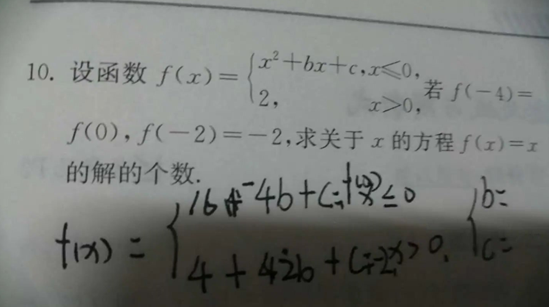 10. 设函数 f(x)={x²+bx+c,x≤0, 2, x>0, 若 f(-4)=
f(0), f(-2)=-2,求关于 x 的方程 f(x)=x
的解的个数.
f(x)={16 -4b+c= ≤0 {b=
4+ 2b+c=-2 x>0. c=